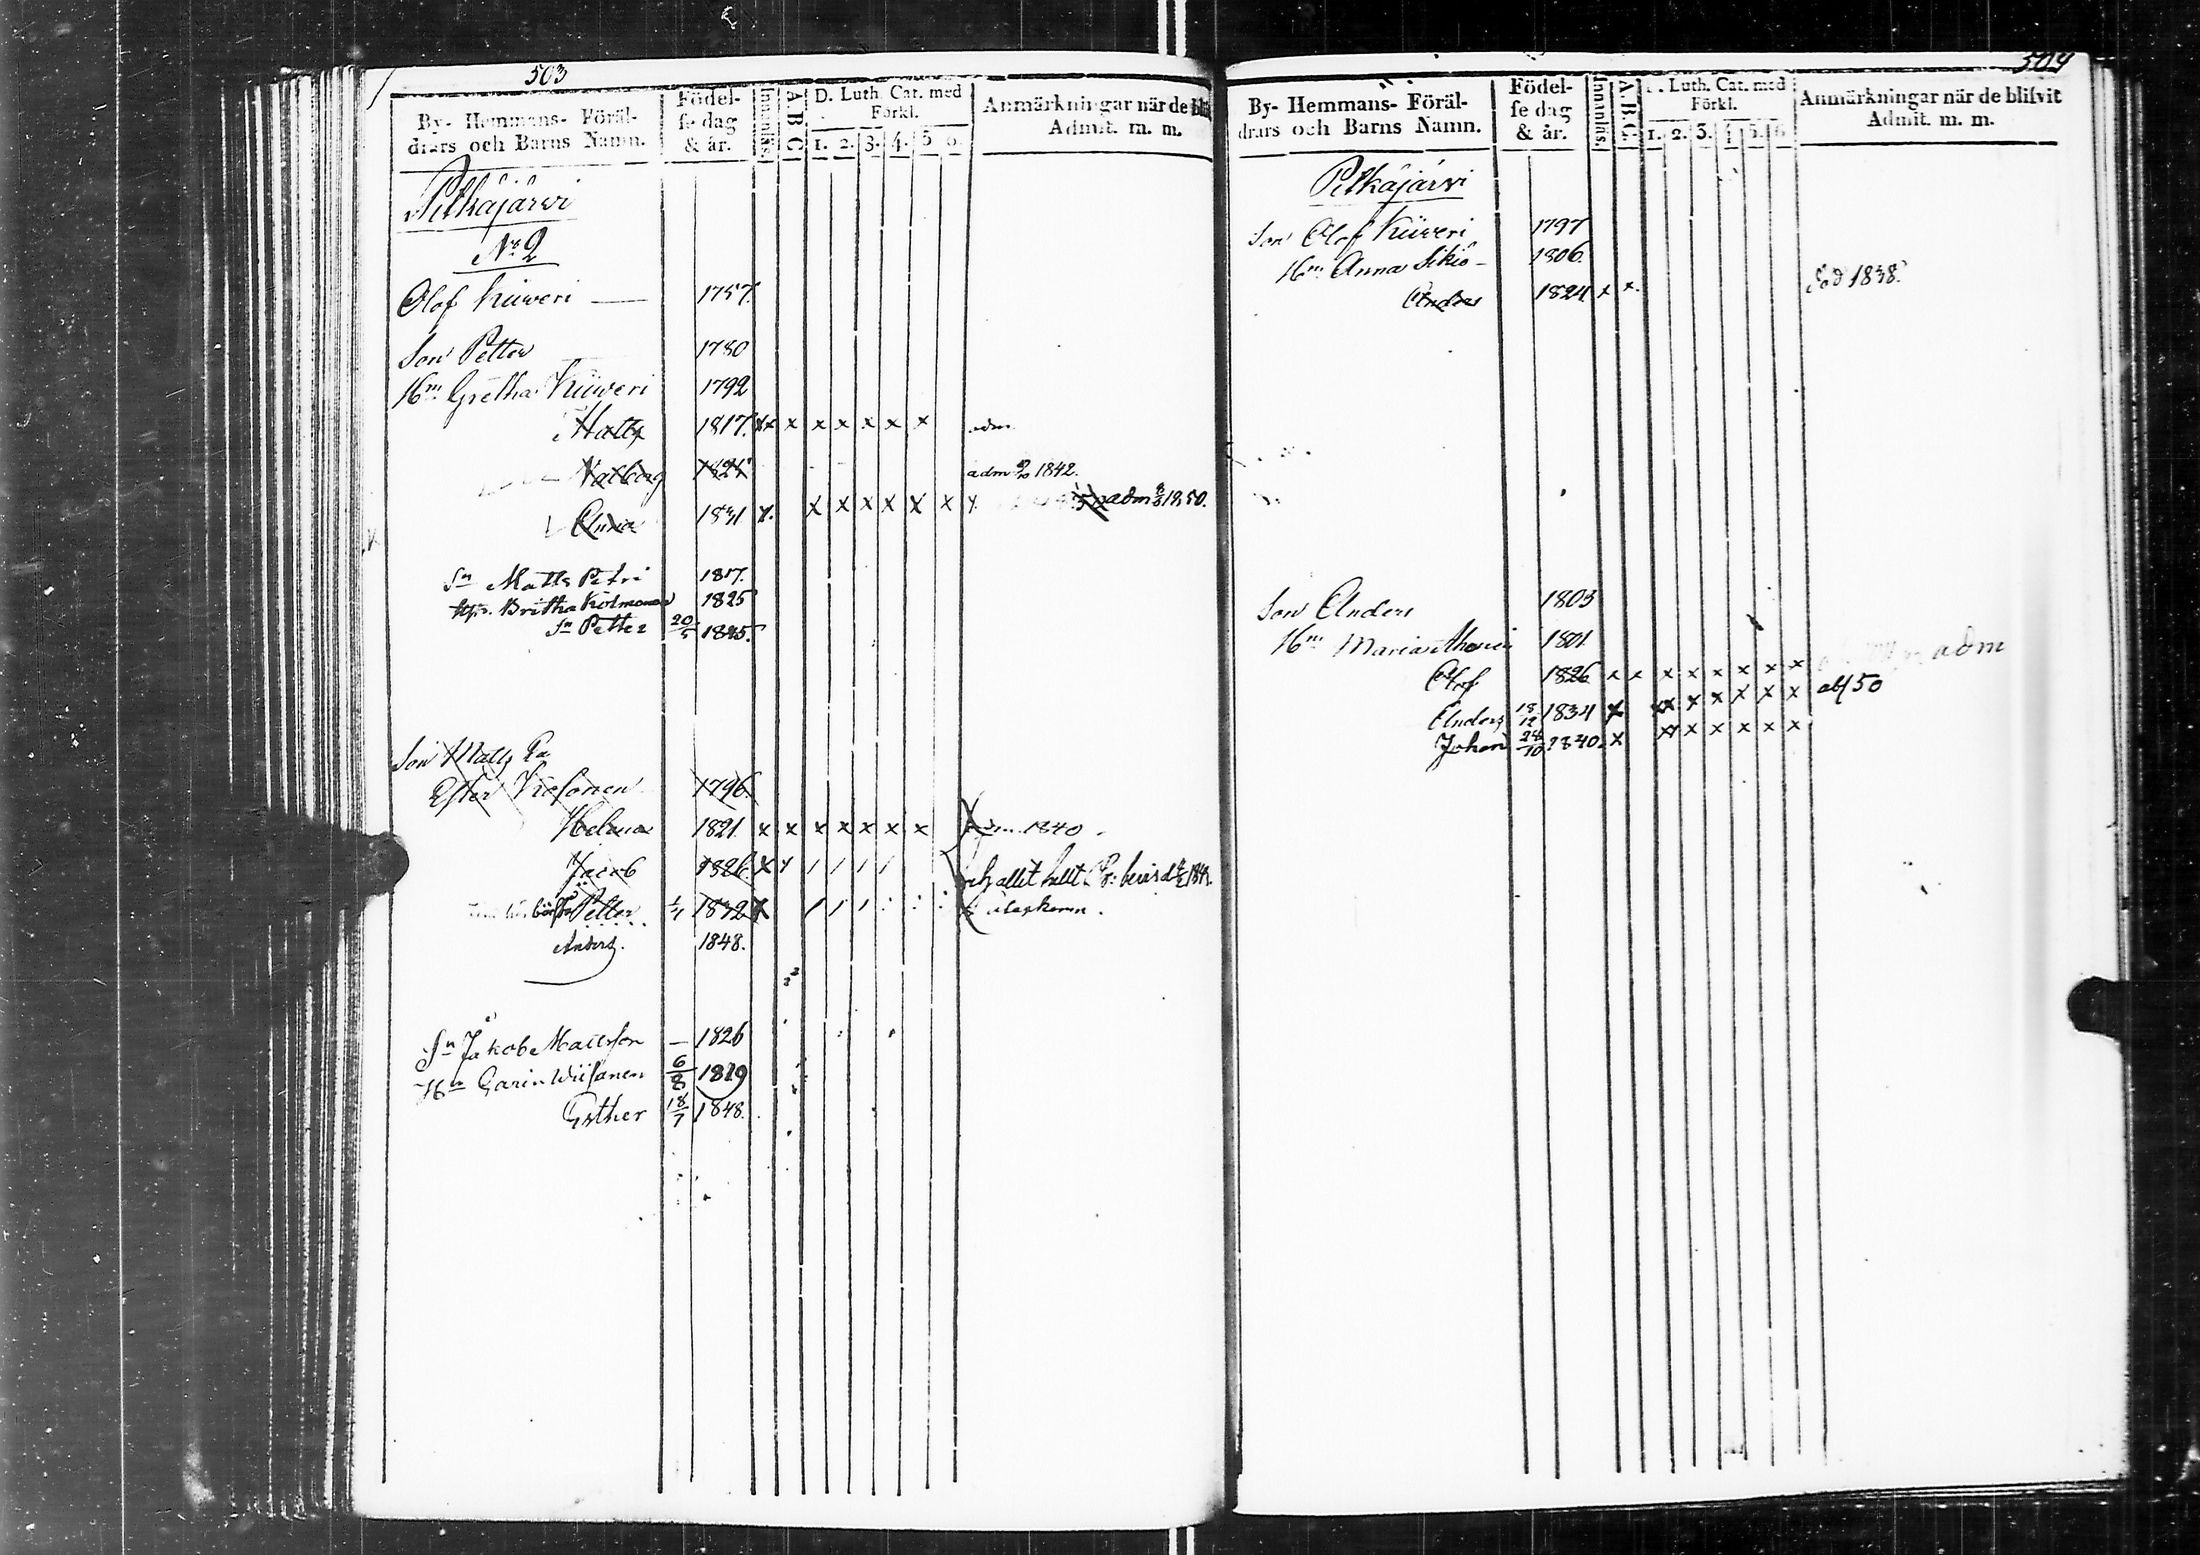 503
By- Hemmans- Föräl-
drars och Barns Namn.
Födel-
se dag
& år.
Innanläs.
A B C
D. Luth. Cat. med
Förkl.
1. 2. 3. 4. 5 6.
Anmärkningar när de bli
Admit. m. m.
Pitkäjärwi
No 2
Olof Kiiweri — 1757.
Son Petter 1780
Hn Gretha Kiiweri 1792
Matts 1817. xx x x x x x x adm
Valborg 1821 adm 1842.
Anna 1831 x. x x x x x x adm 1850.
Sn Matts Petri 1817.
Britha Kolmonen 1825
Sn Petter 20/5 1845.
Son Matts
Ester 1796.
Helena 1821 x x x x x x x 1840
Jacob 1826. x
Petter 1832 x
Anders. 1848.
Sn Jakob Mattsson — 1826
Hn Carin Wiisanen 6/8 1819
Esther 18/7 1848.
504
By- Hemmans- Föräl-
drars och Barns Namn.
Födel-
se dag
& år.
Innanläs.
A.B.C.
D. Luth. Cat. med
Förkl.
1. 2. 3. 4 5. 6
Anmärkningar när de blifvit
Admit. m. m.
Pitkäjärwi
Son Olof Kiiweri 1797
Hn Anna Sikiö - 1806.
Anders 1824 x x. död 1838.
Son Anders 1803
Hn Maria 1801
Olof 1826 x x x x x x x x adm
Anders 18/12 1834 x x x x x x x abs 50
Johan 24/10 1840. x x x x x x x